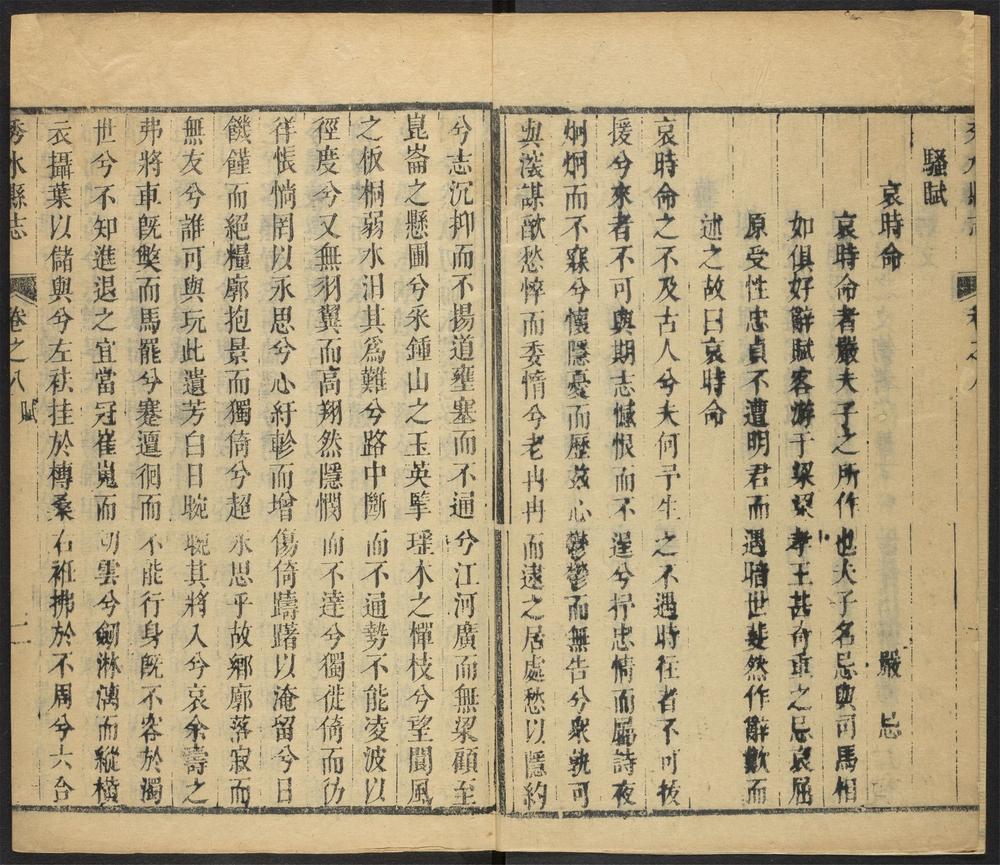 騷賦
哀時命　嚴　忌
哀時命者嚴夫子之所作也夫子名忌與司馬相
如俱好辭賦客游于梁梁孝王甚奇重之忌哀屈
原受性忠貞不遭明君而遇暗世斐然作辭歎而
述之故曰哀時命
哀時命之不及古人兮夫何予生之不遘時往者不可扳
援兮來者不可與期志憾恨而不逞兮抒忠情而屬詩夜
炯炯而不寐兮懷隱憂而歷茲心鬱鬱而無告兮衆孰可
與深謀欿愁悴而委惰兮老冉冉而逮之居處愁以隱約
兮志沉抑而不揚道壅塞而不通兮江河廣而無梁願至
崑崙之懸圃兮采鍾山之玉英擥瑤木之橝枝兮望閬風
之板桐弱水汨其爲難兮路中斷而不通勢不能凌波以
徑度兮又無羽翼而高翔然隱憫而不達兮獨徙倚而彷
徉悵惝罔以永思兮心紆軫而增傷倚躊躇以淹留兮日
饑饉而絕糧廓抱景而獨倚兮超永思乎故鄉廓落寂而
無友兮誰可與玩此遺芳白日晼晚其將入兮哀余壽之
弗將車旣弊而馬罷兮蹇邅徊而不能行身旣不容於濁
世兮不知進退之宜當冠崔嵬而切雲兮劒淋漓而縱橫
衣攝葉以儲與兮左袪挂於榑桑右衽拂於不周兮六合
秀水縣志　卷之八　賦　二